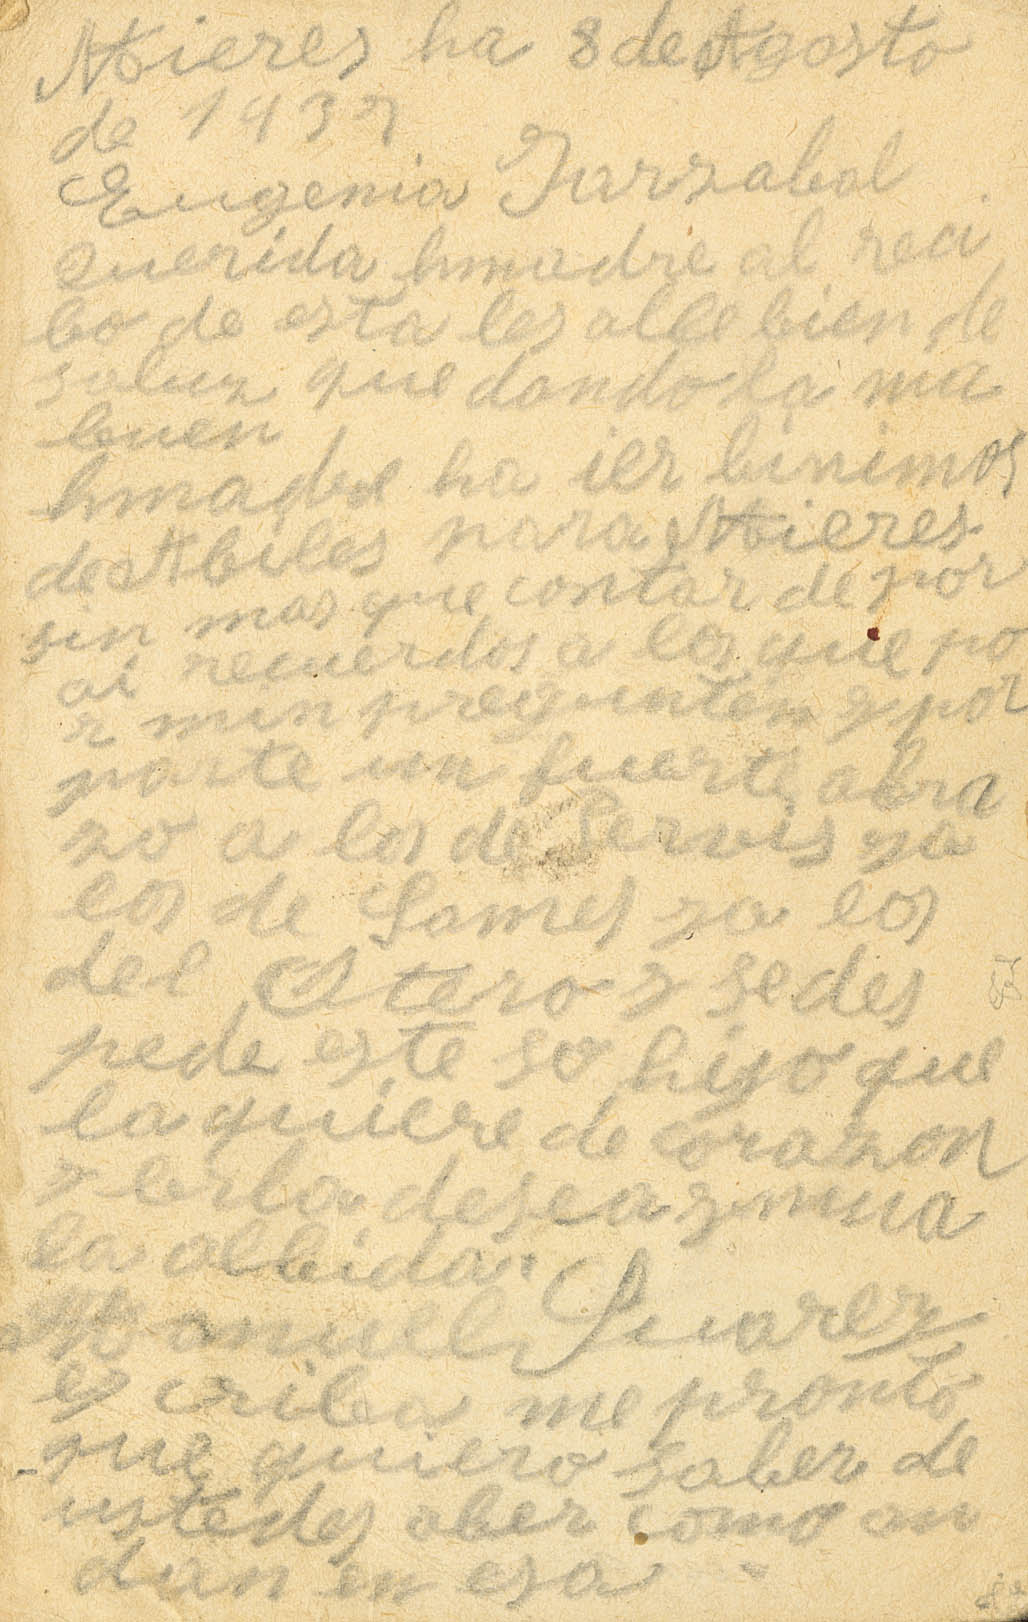 Mieres ha 8 de Agosto
de 1937
Eugenia Jarzabal
querida hmadre al reci
bo de esta les alle bien de
saluz que dando la mia
buen
hmadre ha ier binimos
de Abiles para Mieres
sin mas que contar de por
ai recuerdos a los que po
r min pregunten y por
parte un fuerte abra
zo a los de Servis ya
los de Sames ya los
del Otero y se des
pede este so hijo que
la quiere de corazon
y berla desea y nunca
la olbida.
Manuel Suarez
escriba me pronto
que quiero saber de
ustedes aber como an
dan en esa